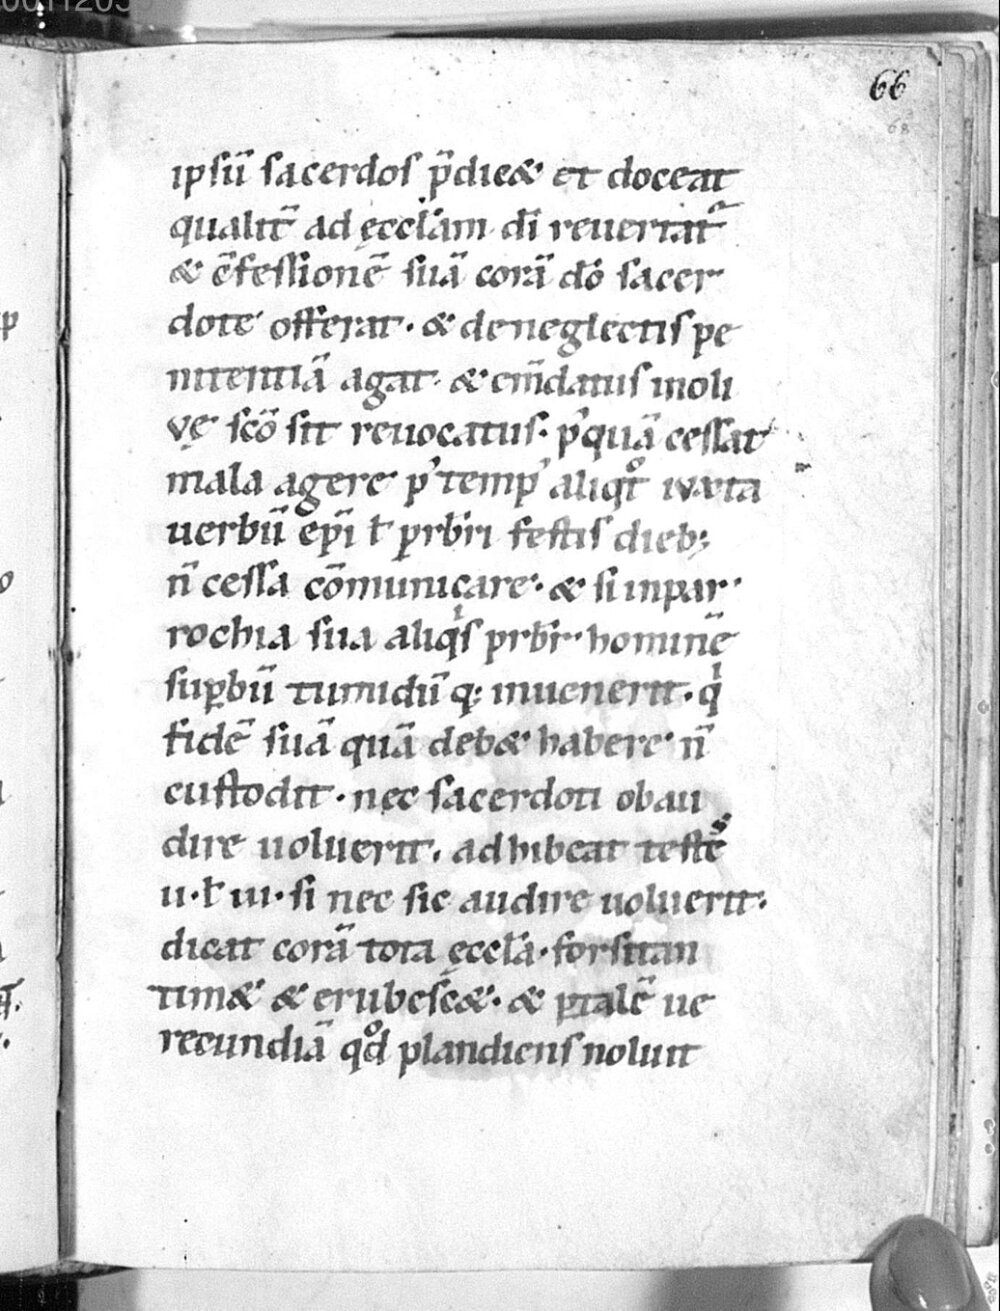 66
68
ipsu̅ sacerdos p̅dic& et doceat
qualit̅ ad ęccl̅am di̅ reuertat᷑
& c̅fessione̅ sua̅ cora̅ do̅ sacer
dote offerat · & de neglectis pe
nitentia̅ agat · & em̅datus in oli
vę sc̅o sit reuocatus · p᾽qua̅ cessat
mala agere p᾽ temp᾽ aliqͦt iuxta
uerbu̅ epi̅ ł prb̅ri festis dieb;
n̅ cessa co̅municare · & si in par
rochia sua aliqͥs prb̅r · homine̅
sup̲bu̅ tumidu̅ q; inuenerit · qͥ
fide̅ sua̅ qua̅ deb& habere n̅
custodit · nec sacerdoti obau
dire uoluerit · adhibeat teste̅s
ii · ł iii · si nec sic audire uoluerit ·
dicat cora̅ tota ęccl̅a · forsitan
tim& & erubesc& · & p̲ tale̅ ue
recundia̅ qͦd plandiens noluit